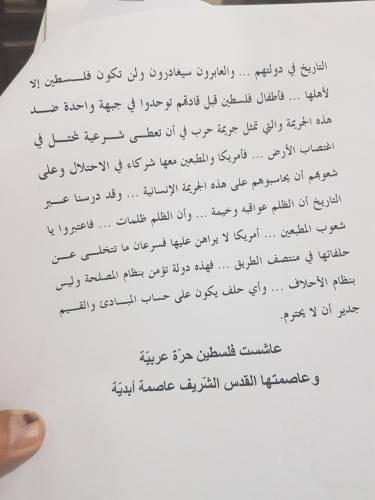 التاريخ في دولتهم ... والعابرون سيغادرون ولن تكون فلسطين إلا
لأهلها ... فأطفال فلسطين قبل قادتهم توحدوا في جبهة واحدة ضد
هذه الجريمة والتي تمثل جريمة حرب في أن تعطى شرعية لمحتل في
اغتصاب الأرض ... فأمريكا والمطبعين معها شركاء في الاحتلال وعلى
شعوبهم أن يحاسبوهم على هذه الجريمة الإنسانية ... وقد درسنا عبر
التاريخ أن الظلم عواقبه وخيمة ... وأن الظلم ظلمات ... فاعتبروا يا
شعوب المطبعين ... أمريكا لا يراهن عليها فسرعان ما تتخلى عن
حلفائها في منتصف الطريق ... فهذه دولة تؤمن بنظام المصلحة وليس
بنظام الأحلاف ... وأي حلف يكون على حساب المبادئ والقيم
جدير أن لا يحترم.
عاشت فلسطين حرّة عربيّة
وعاصمتها القدس الشّريف عاصمة أبديّة